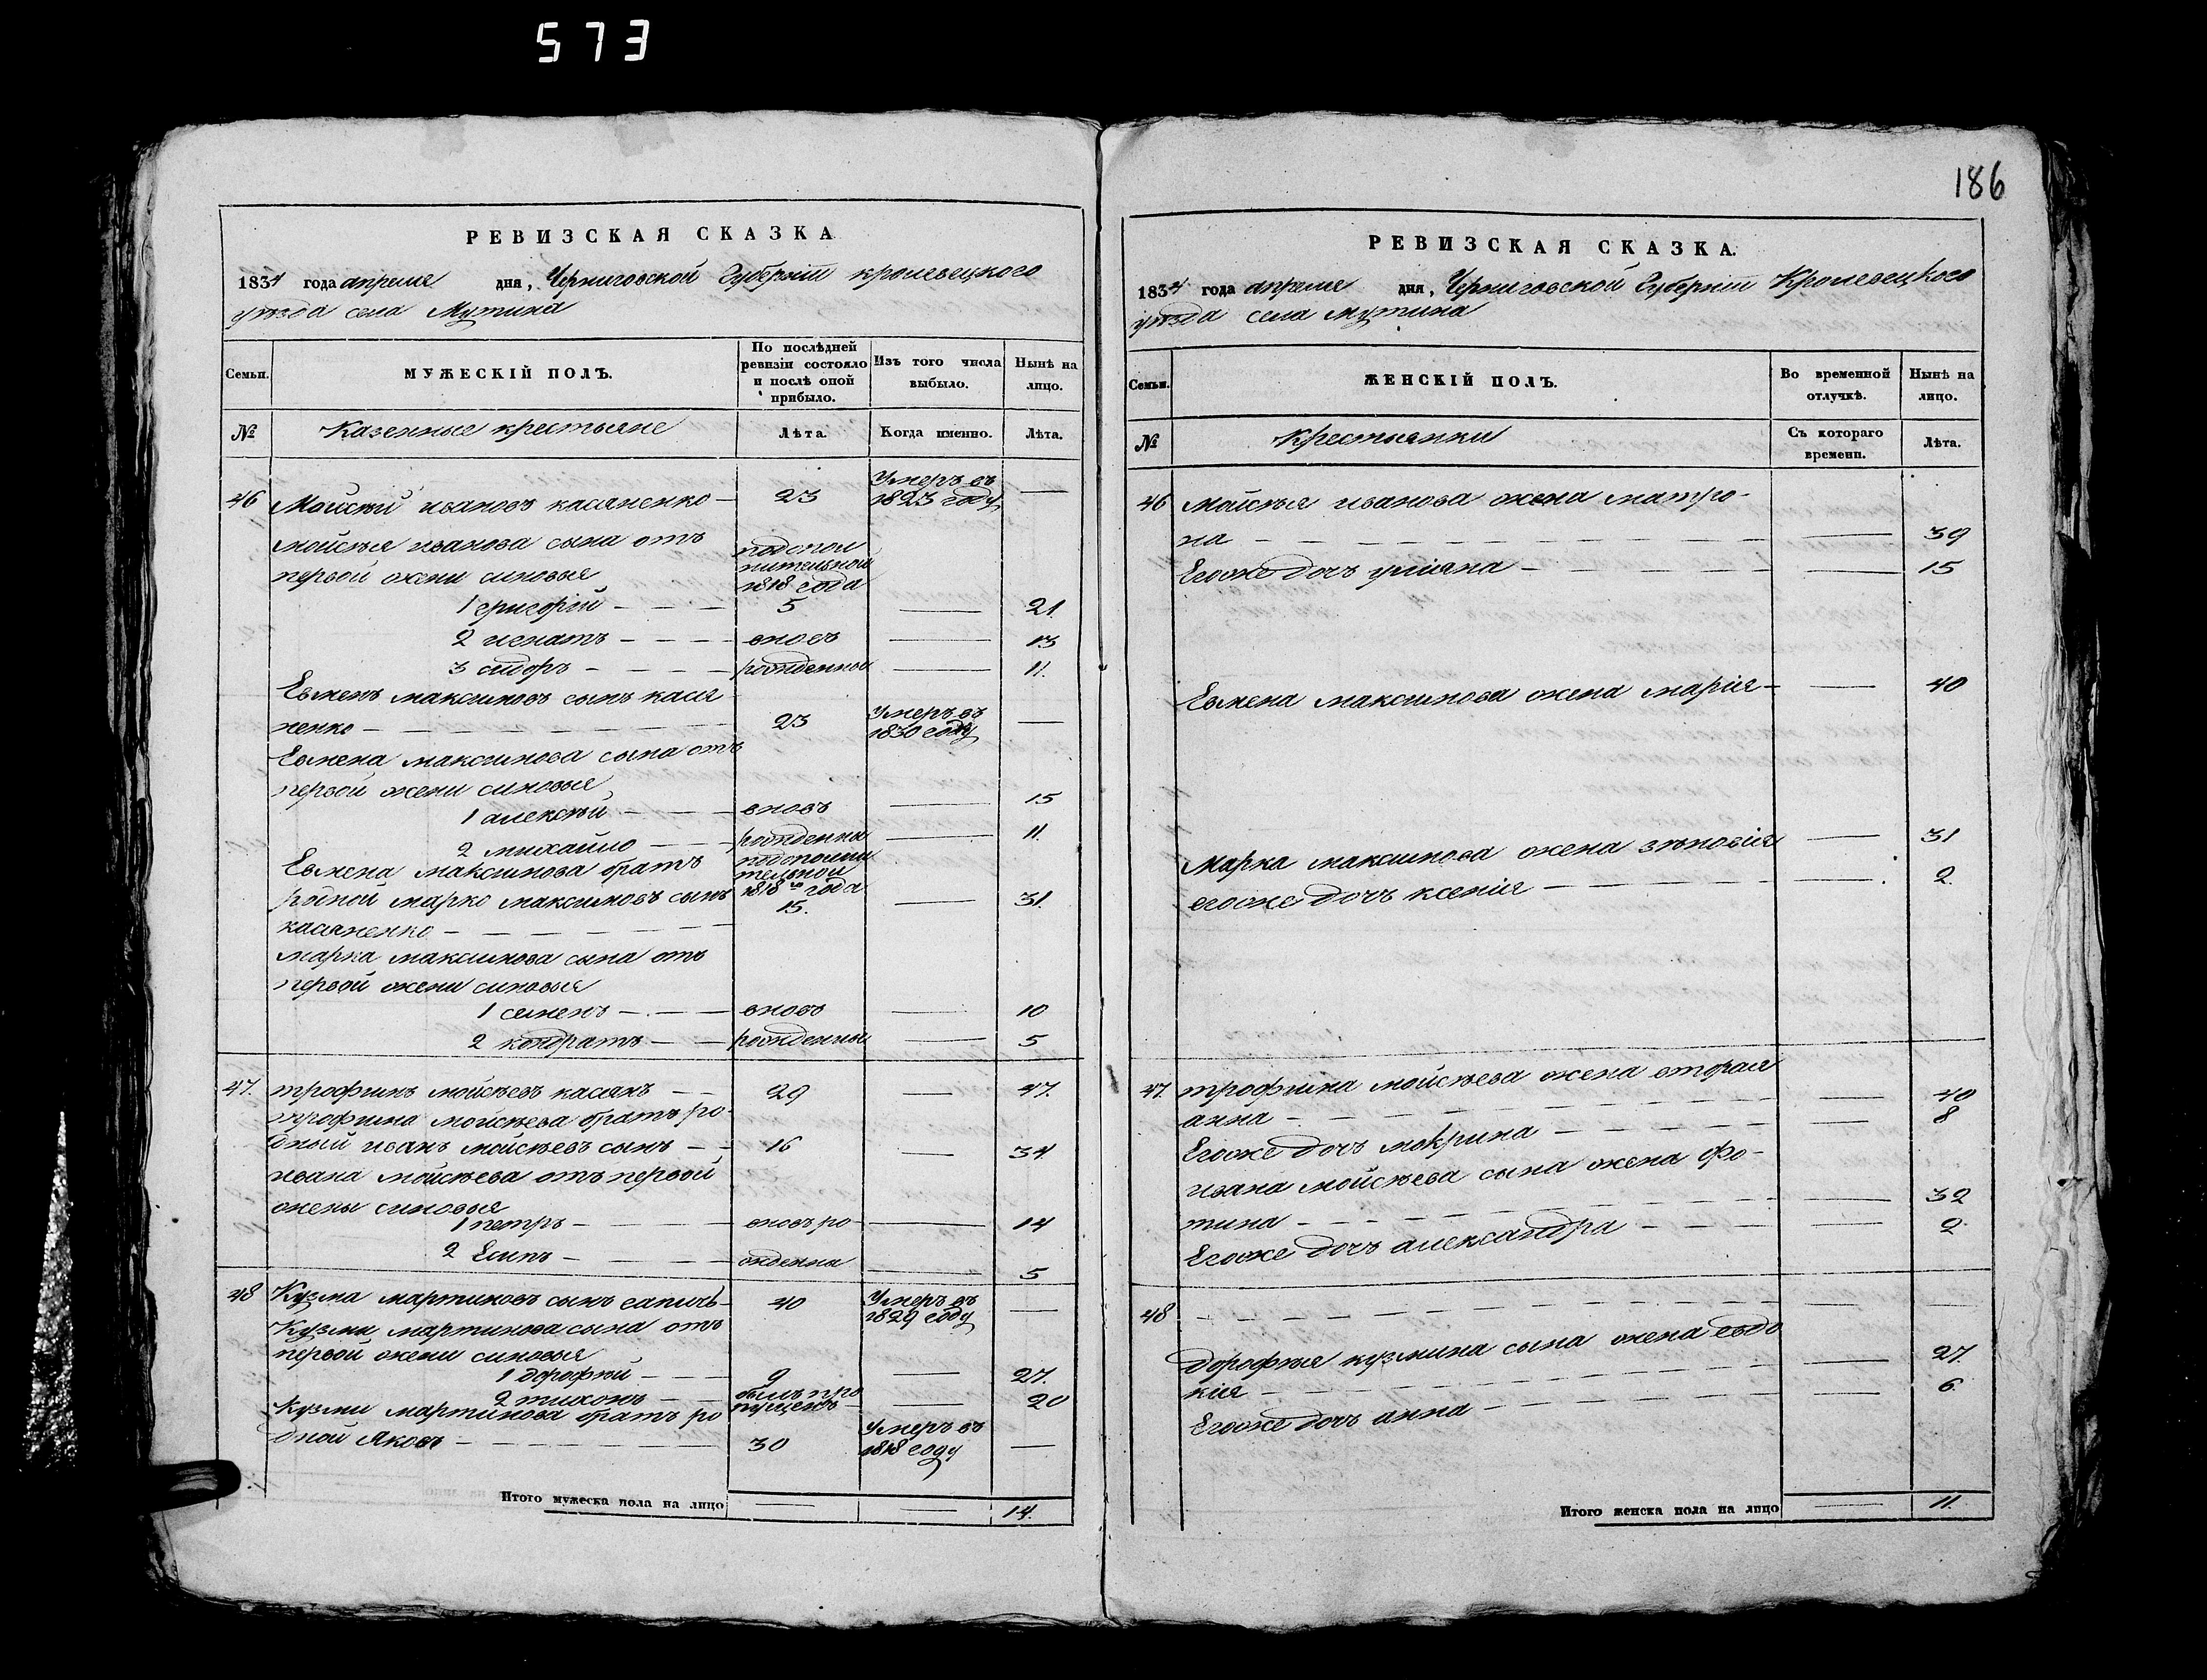 573
РЕВИЗСКАЯ СКАЗКА
1834 года апреля дня, Черниговской Губерніи кролевецкого
уезда села Мутина
Семьи.
МУЖЕСКІЙ ПОЛЪ.
По послѣдней
ревизіи состояло
и послѣ оной
прибыло.
Изъ того числа
выбыло.
Нынѣ на
лицо.
№
Казенные крестьяне
Лѣта.
Когда именно.
Лѣта.
46 Мойсѣй ивановъ касяненко — 23 Умеръ въ
1823 году —
мойсѣя иванова сына отъ
первой жени синовья
подополнительной
1818 года
1 григорій — — — 5 — 21.
2 игнатъ — — — вновъ — 13
3 сидоръ — — — рожденны — 11.
Евменъ максимовъ сынъ кася
ненко — — — 23 Умеръ въ
1830 году —
Евмена максимова сына отъ
первой жени синовья
1 алексѣй — — — вновъ — 15
2 михайло — — рожденны — 11.
Евмена максимова братъ
родной марко максимовъ сынъ
касяненко — — —
1818 го года
15. — 31.
марка максимова сына отъ
первой жени синовья
1 семенъ — — — вновъ — 10
2 кондратъ — — рожденны — 5
47. трофимъ мойсѣевъ касянъ — — 29 — 47.
трофима мойсѣева братъ ро-
дный иванъ мойсѣевъ сынъ — — 16 — 34
ивана мойсѣева отъ первой
жены синовья
1 петръ — — — вновъ ро- — 14
2 Есипъ — — — жденны — 5
48 Кузма мартиновъ сынъ — 40 Умеръ въ
1829 году —
Кузми мартинова сына отъ
первой жени синовья
1 дорофѣй — — — 9 — 27.
2 тихонъ — — былъ про
пущенъ — 20
Кузми мартинова братъ ро
дной Яковъ — — — 30 Умеръ въ
1818 году —
Итого мужеска пола на лицо — — 14.
186
РЕВИЗСКАЯ СКАЗКА.
1834 года апреля дня, Черниговской Губерніи Кролевецкого
уезда села мутина
Семьи.
ЖЕНСКІЙ ПОЛЪ.
Во временной
отлучкѣ.
Нынѣ на
лицо.
№
Крестьянки
Съ котораго
времени.
Лѣта.
46 мойсѣя иванова жена матро-
на — — — 39
Егоже дочъ уліяна — — — 15
Евмена максимова жена марія — — 40
Марка максимова жена зѣновія — 31
егоже дочъ ксенія — — — 2.
47. трофима мойсѣева жена вторая
анна — — — 40
Егоже дочъ мокрина — — — 8
ивана мойсѣева сына жена фо-
тина — — — 32
Егоже дочъ александра — — — 2
48 — — —
дорофѣя кузмина сына жена евдо
кія — — — 27.
Егоже дочъ анна — — — 6.
Итого женска пола на лицо — 11.